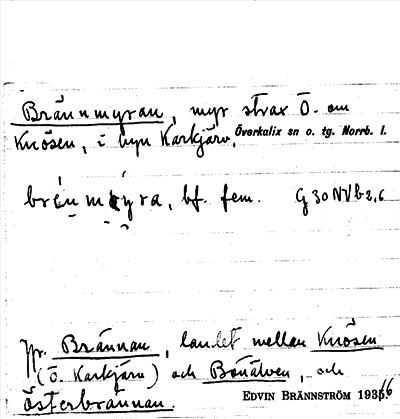 Brännmyran, myr strax Ö. om
Knösen, i byn Karkjärv, Överkalix sn o. tg. Norrb. l.
bränmyra, bf. fem. G 30 NV b 2,6
Jfr. Brännan, landet mellan Knösen
(Ö. Karkjärn) och Bönälven, och
Österbrännan. EDVIN BRÄNNSTRÖM 1936